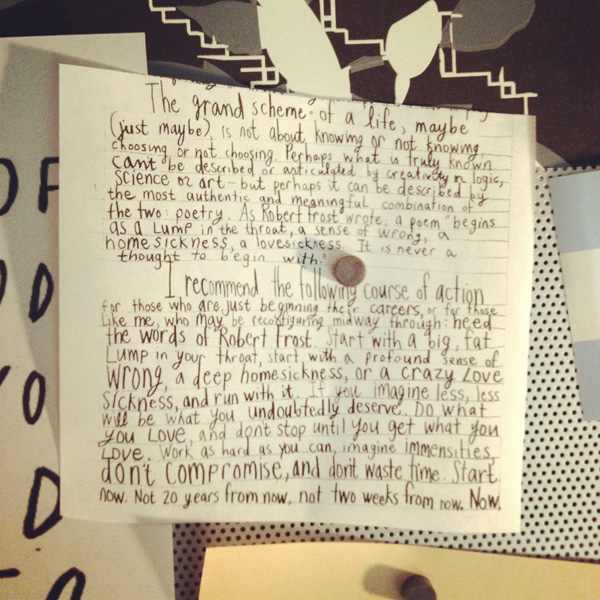 The grand scheme of a life, maybe
(just maybe), is not about knowing or not knowing,
choosing or not choosing. Perhaps what is truly known
can't be described or articulated by creativity or logic,
science or art - but perhaps it can be described by
the most authentic and meaningful combination of
the two: poetry. As Robert Frost wrote, a poem "begins
as a lump in the throat, a sense of wrong, a
homesickness, a lovesickness. It is never a
thought to begin with."
I recommend the following course of action
for those who are just beginning their careers, or for those
like me, who may be reconfiguring midway through: heed
the words of Robert Frost. Start with a big, fat
lump in your throat, start with a profound sense of
wrong, a deep homesickness, or a crazy love
sickness, and run with it. If you imagine less, less
will be what you undoubtedly deserve. Do what
you love, and don't stop until you get what you
love. Work as hard as you can, imagine immensities,
don't compromise, and don't waste time. Start
now. Not 20 years from now, not two weeks from now. Now.